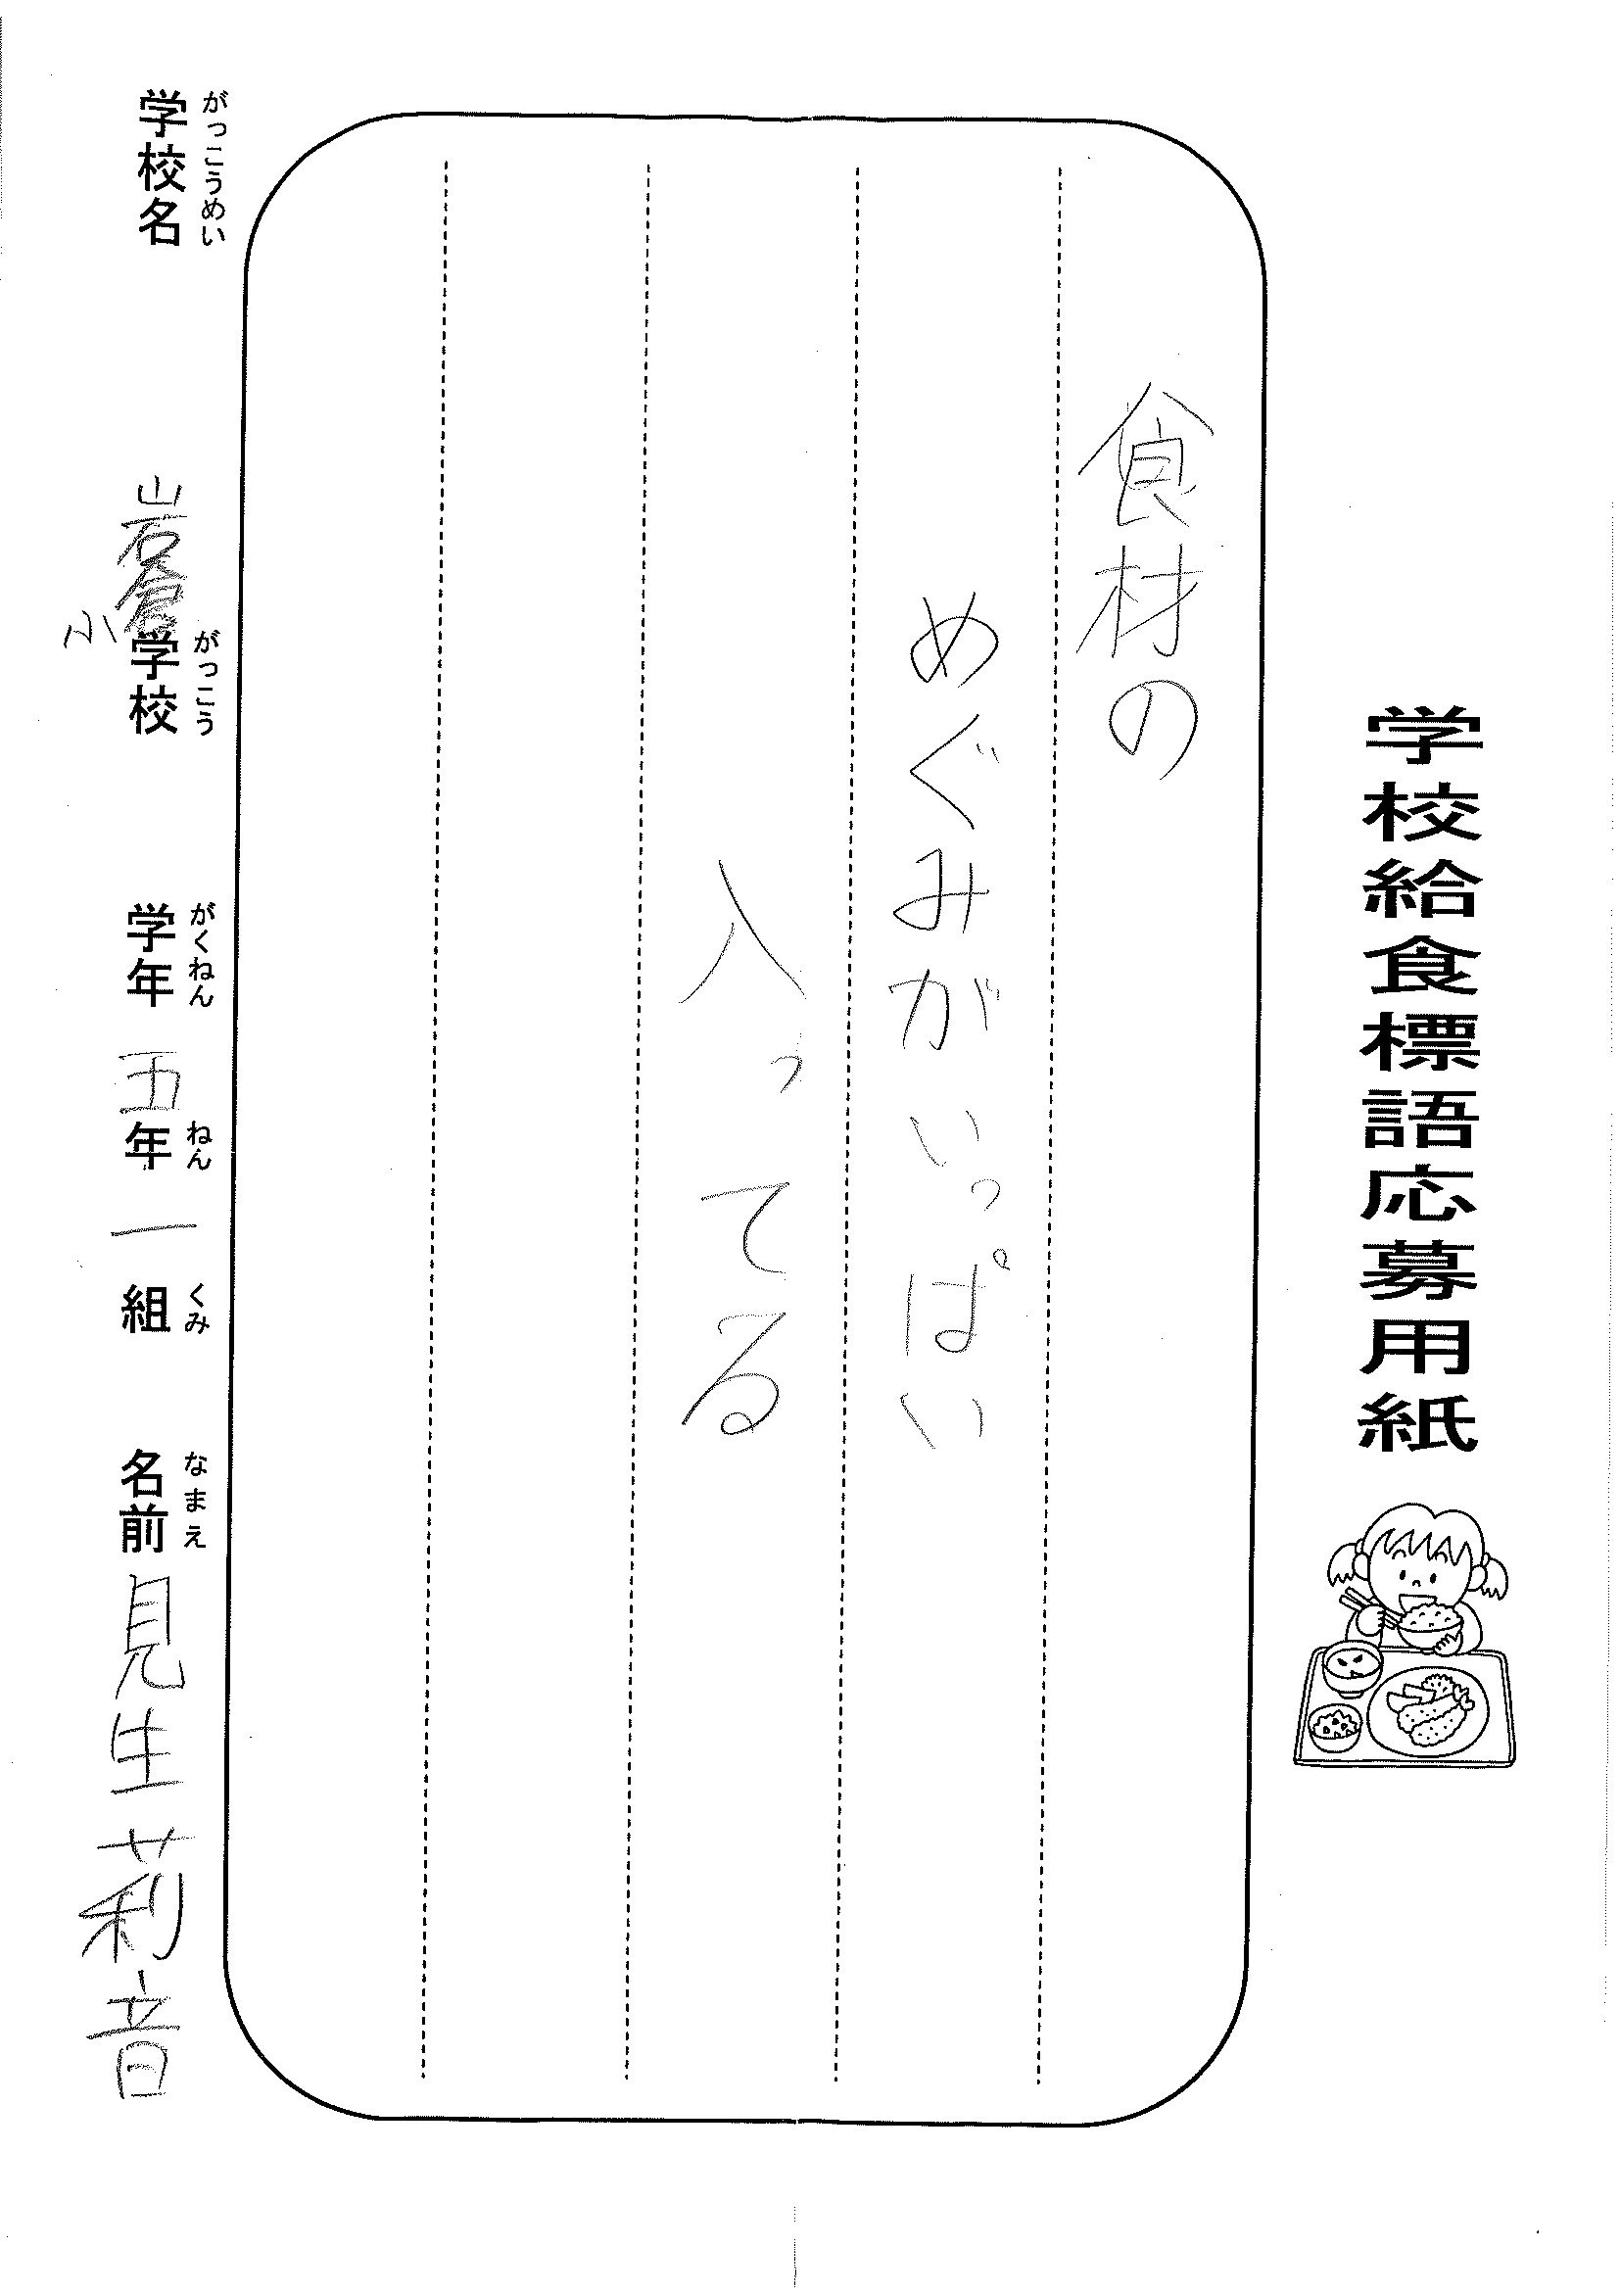 学校給食標語応募用紙
食材の
めぐみがいっぱい
入ってる
がっこうめい
学校名
岩倉小
がっこう
学校
がくねん
学年
五
ねん
年
一
くみ
組
なまえ
名前
見生莉音